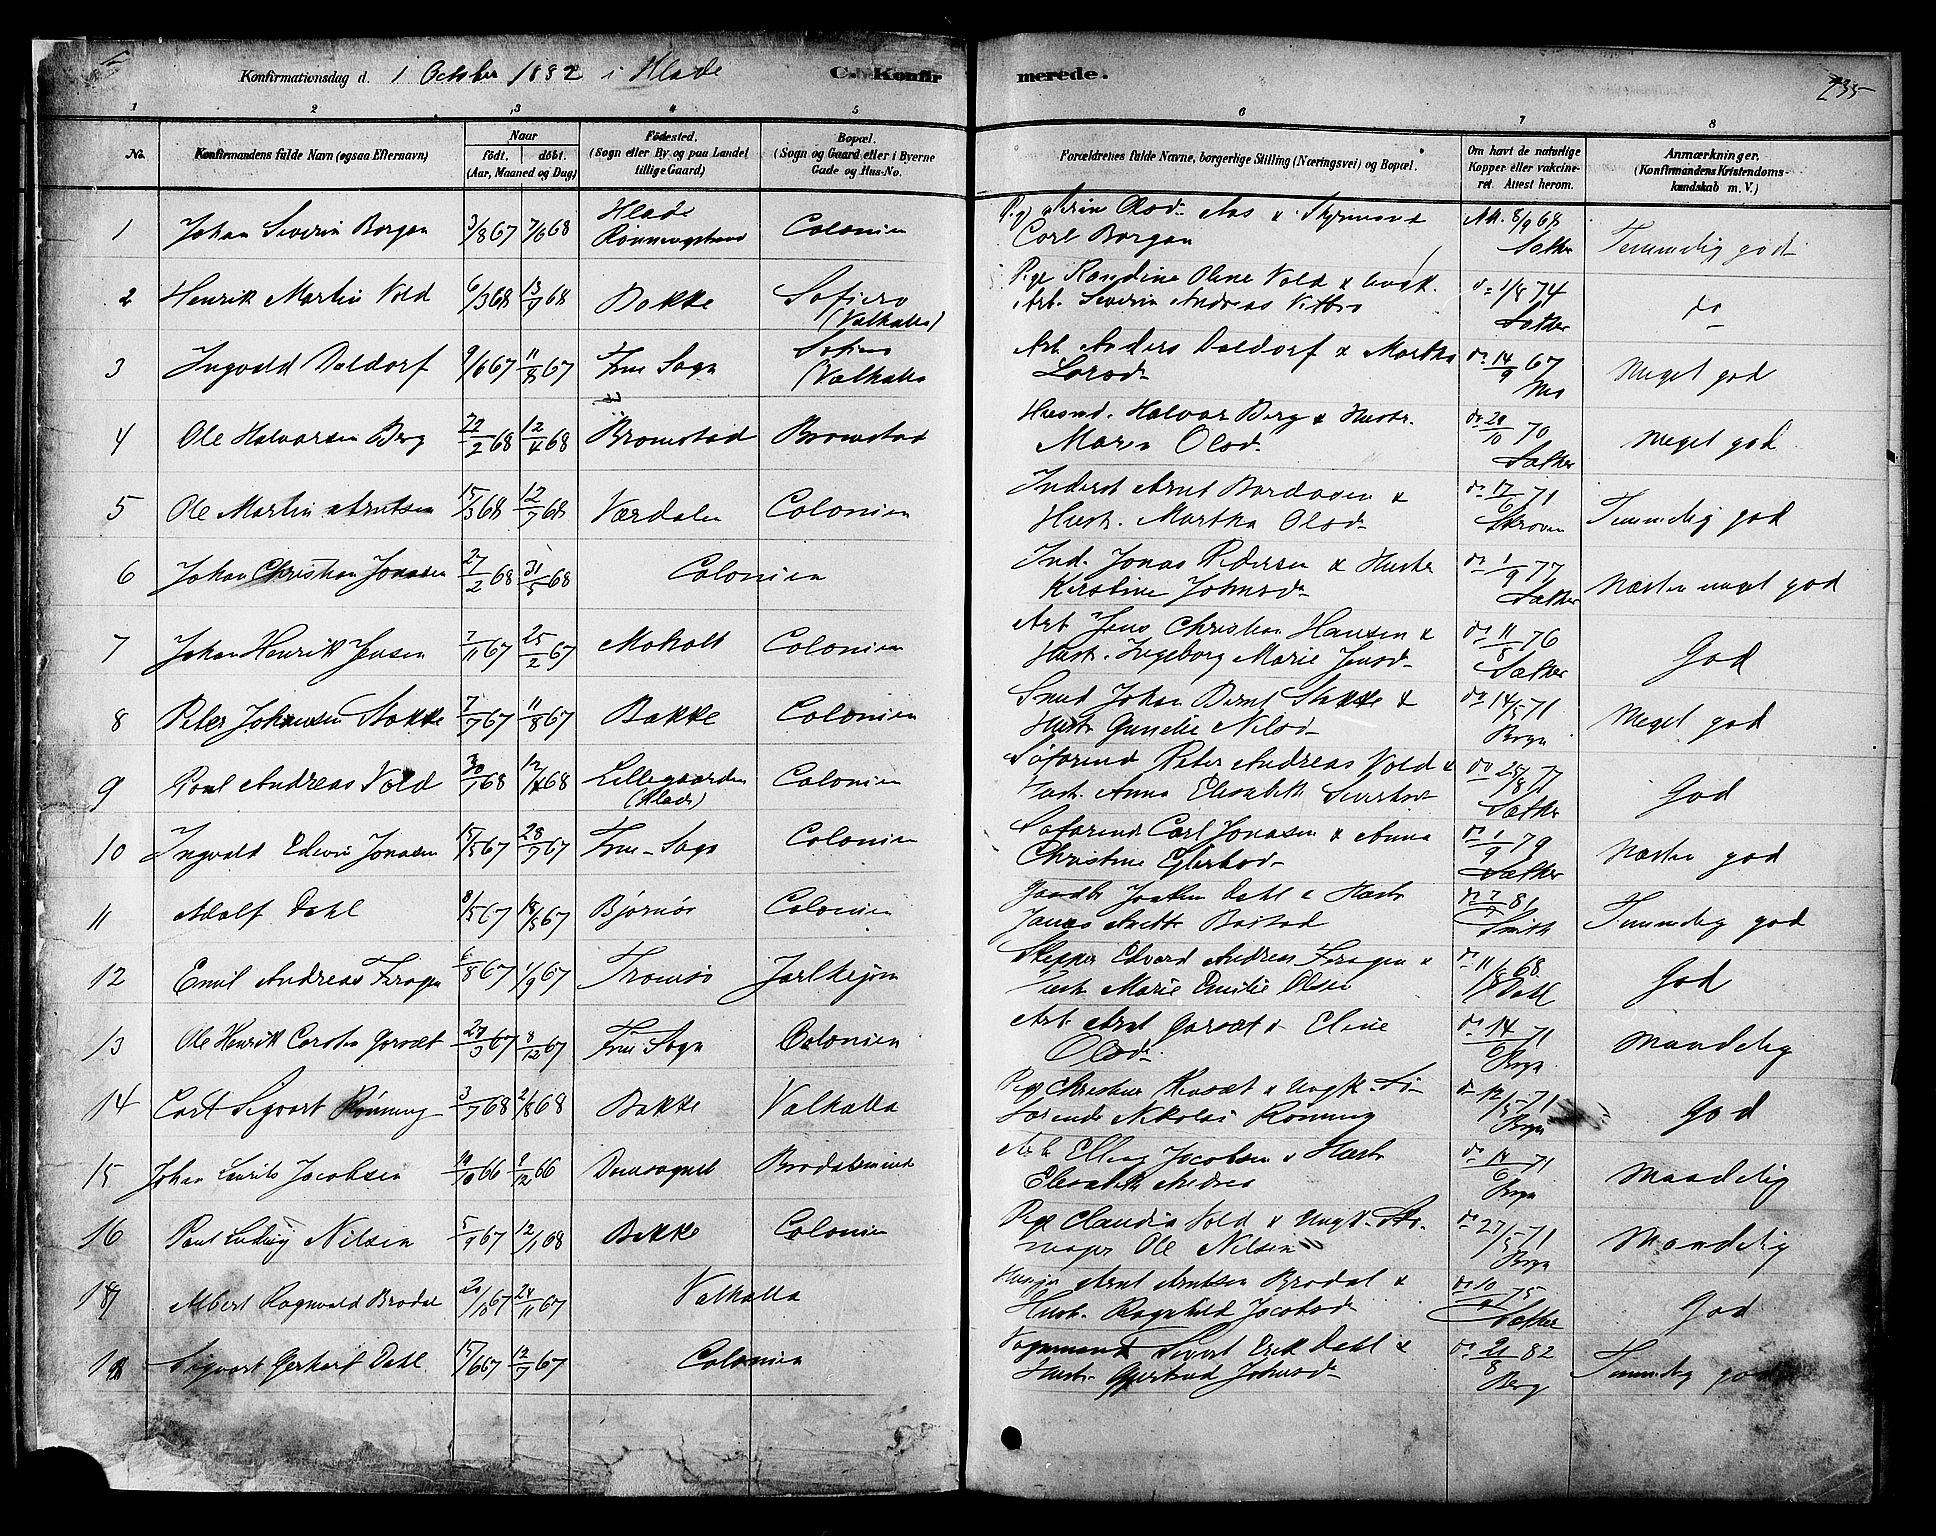 Konfirmationsdag d. 1 October 1882 i Hlade C. Konfirmerede. 235
1 2 3 4 5 6 7 8
No. Konfirmandens fulde Navn (ogsaa Efternavn) Naar født, døbt. (Aar, Maaned og Dag) Fødested. (Sogn eller By og paa Landet tillige Gaard) Bopæl. (Sogn og Gaard eller i Byerne Gade og Hus-No. Forældrenes fulde Navne, borgerlige Stilling (Næringsvei) og Bopæl. Om havt de naturlige Kopper eller vakcineret. Attest herom. Anmærkninger. (Konfirmandens Kristendomskundskab m. V.)
1 Johan Severin Borgan 3/8 67 7/6 68 Hlade Colonien Att. 8/9 68 Temmelig god
Carl Borgan Sather
2 Henrik Martin Vold 6/3 68 13/4 68 Bakke Sofiero (Valhalla) Pige Randine Oline Vold & Ungk. do 1/8 74 do
Arb. Severin Andreas Sather
3 Ingvald Daldorf 9/6 67 11/8 67 Frue Sogn (Valhalla Arb. Anders Daldorf & Martha do 14/9 67 Meget god
4 Ole Halvorsen Berg 22/2 68 12/4 68 Bromstad Bromstad Husmd. Halvor Berg & Hustr. do 20/10 70 Meget god
Maren Olsd. Sather
5 Ole Martin Arntsen 15/3 68 12/7 68 Værdalen Colonien Inderst Arnt Bardosen & do 17/6 71 Temmelig god
Hustr. Martha Olsd.
6 Johan Christian Jonasen 27/2 68 31/5 68 Colonien Ind. Jonas Pedersen & Hustr do 1/9 77 Næsten meget god
Kirstine Johnsd. Sather
7 Johan Henrik Jensen 7/11 67 25/2 67 Moholt Colonien Arb. Jens Christian Hansen & do 11/8 76 God
Hust. Ingeborg Marie Jensd. Sather
8 Peter Johansen Stokke 7/7 67 11/8 67 Bakke Colonien Smed Johan Bernt Stokke & do 14/5 71 Meget god
Hustr Nilsd.
9 Paul Andreas Vold 30/1 68 Lillegaarden (Hlade) Colonien Søfarend Peter Andreas Vold & do 25/8 77 God
Hust. Anna Elisabeth Sivertsd. Sather
10 Ingvald Edvin Jonasen 15/5 67 28/7 67 Frue-Sogn Colonien Søfarende Carl Jonasen & Anna do 1/9 79 Næsten god
Christine Sather
11 Adolf Dahl 8/5 67 Bjørnør Colonien Joakim Dahl & Hustr do 7/7 81 Temmelig god
Smith
12 Emil Andreas Fragen 6/8 67 1/9 67 Tromsø Skipper Edvard Andreas Fragen & do 11/8 68 God
Hust. Marie Emilie Olsen Dahl
13 Ole Henrik 67 8/12 67 Frue Sogn Colonien Arb. Arnt & Eline do 14/6 71 Maadelig
Olsd.
14 Carl Sigvart Rønning 3/7 68 2/8 68 Bakke Valhalla Pige Christine & Ungk. Sø- 12/5 71 God
farende Nikolai Rønning
15 Johan Laurits Jacobsen 10/10 66 9/12 66 Domsognet Arb Elling Jacobsen & Hustr do 14/6 71 Maadelig
Elisabeth
16 Paul Ludvig Nilsen 67 12/1 68 Bakke Colonien Pige Claudia Vold & Ungk. Sko- do 27/5 71 Maadelig
mager Ole Nilsen
17 Albert Ragnvald Brodal 20/10 67 24/11 67 Valhalla Arnt Arntsen Brodal & do 10/9 75 God
Hust. Ragnhild Jacobsd. Sather
18 Sigvart Gerhart Dahl 15/6 67 12/7 67 Colonien Vognmand Sivert Erik Dahl & do 21/8 82 Temmelig god
Hust. Gjertrud Johnsd. Berg